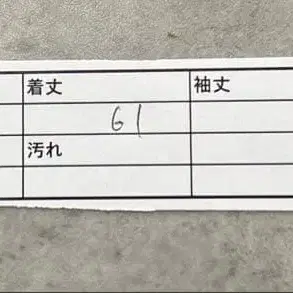 着丈 袖丈
61
汚れ